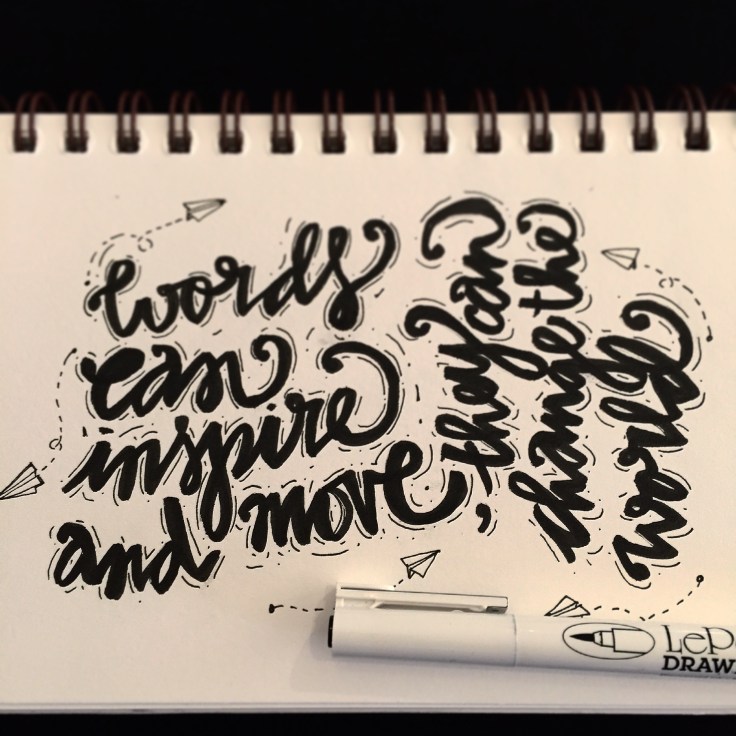 words
can
inspire
and move
, they can
change the
world
LeP
DRAW